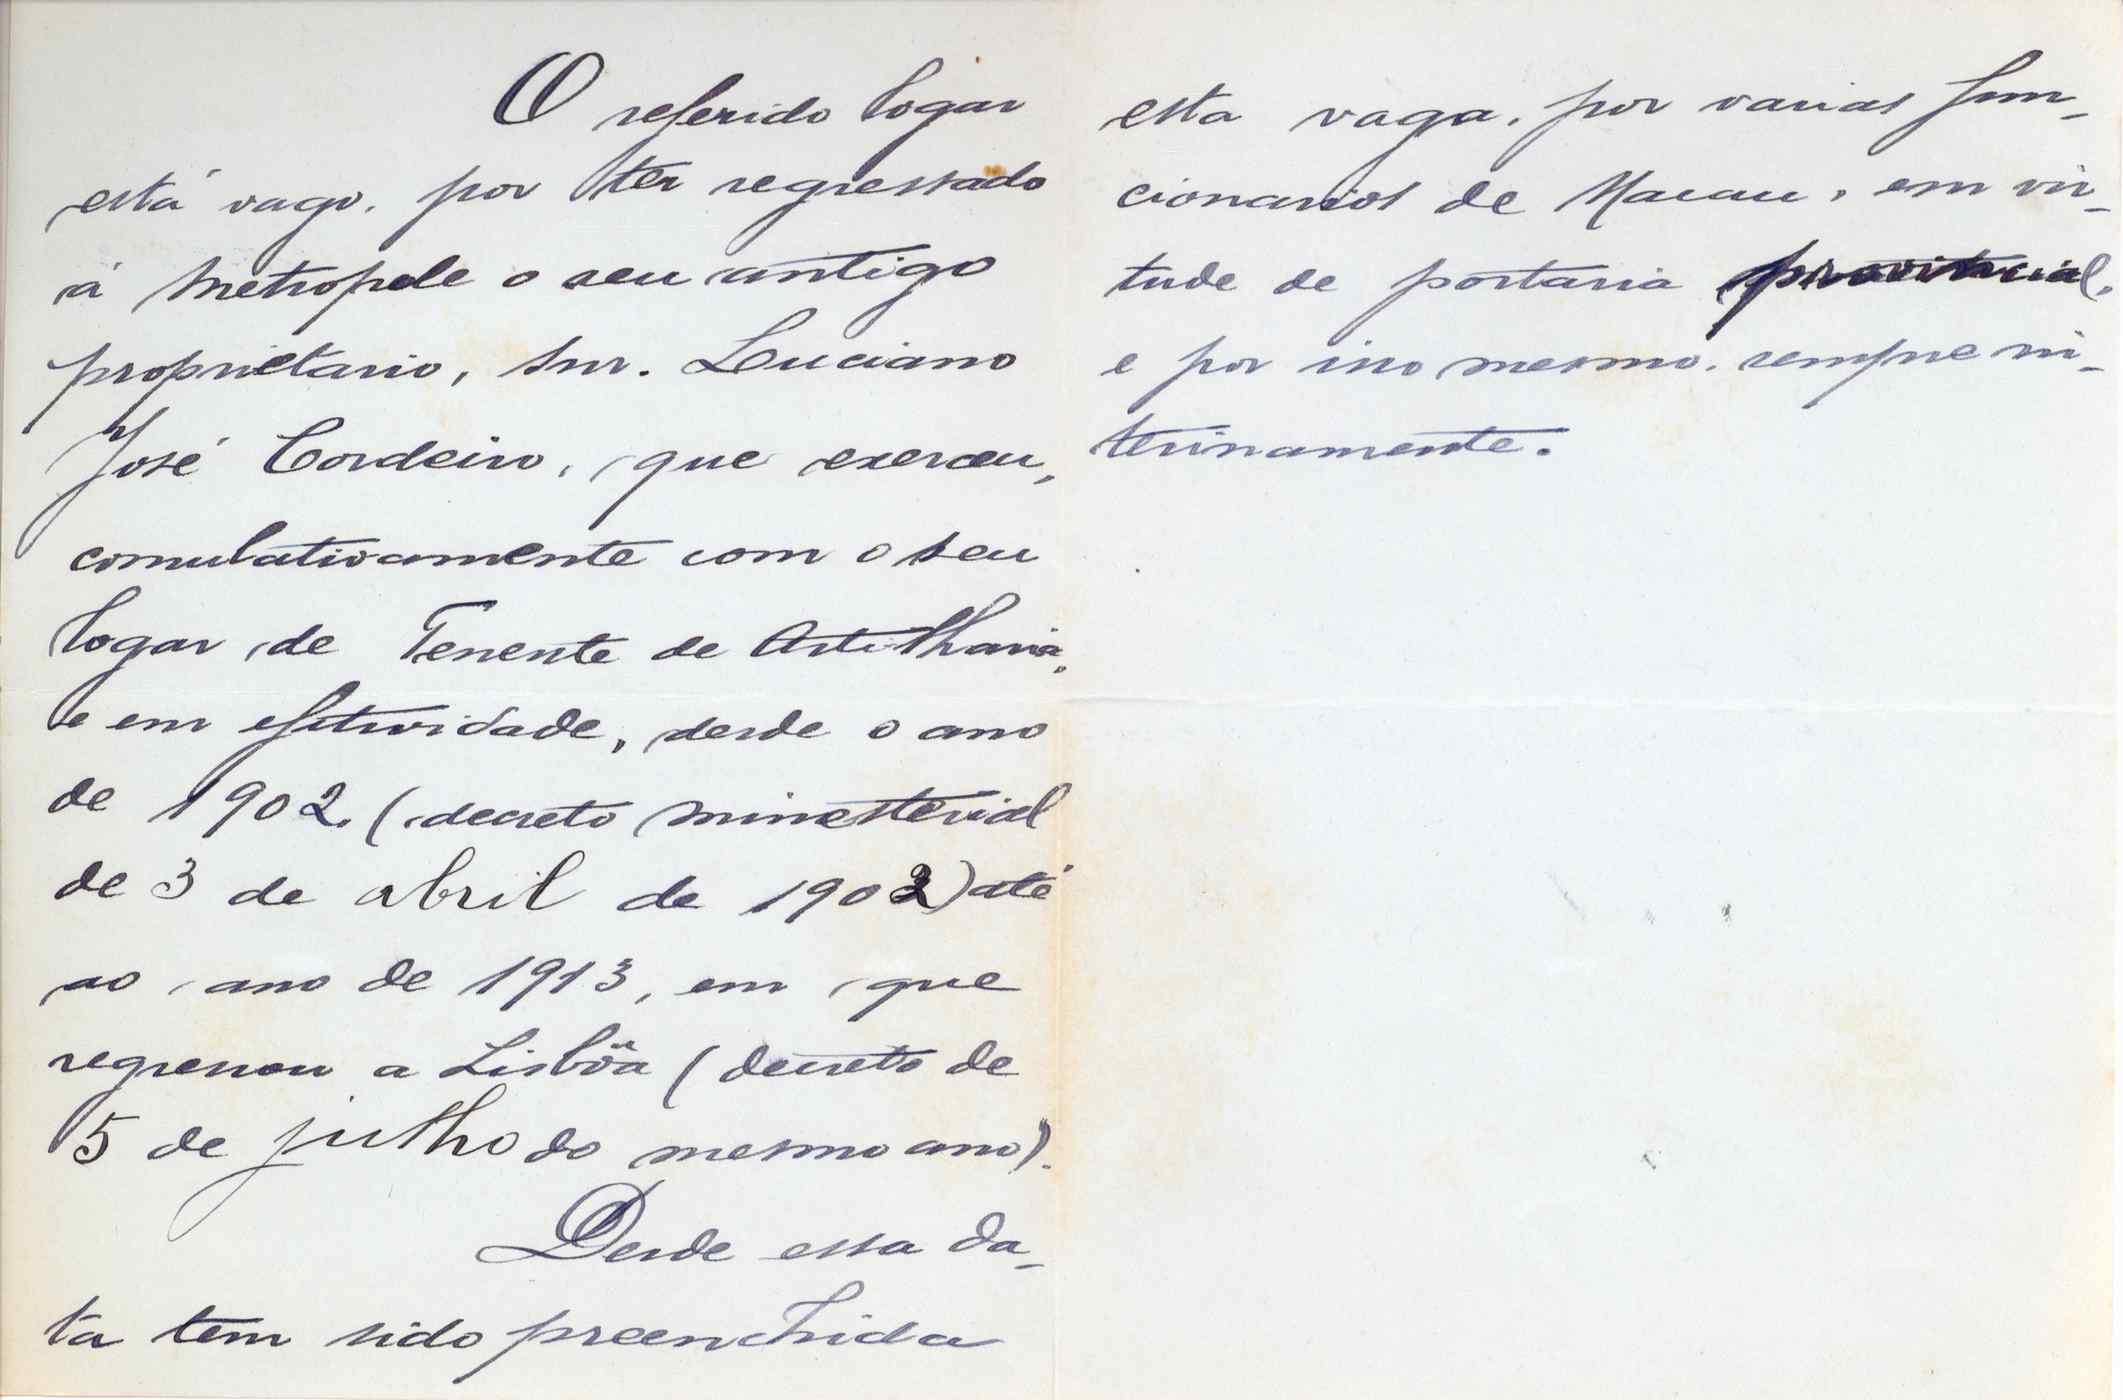 O referido logar
está vago, por ter regressado
á Metropole o seu antigo
proprietario, Snr. Luciano
José Cordeiro, que exerceu,
comulativamente com o seu
logar de Tenente de Artilharia,
e em efetividade, desde o ano
de 1902, (decreto minesterial
de 3 de abril de 1902) até
ao ano de 1913, em que
regressou a Lisbôa (decreto de
5 de julho do mesmo ano).
Desde essa da-
ta tem sido preenchida
esta vaga, por varios fun-
cionarios de Macau, em vir-
tude de portaria provincial,
e por isso mesmo, sempre in-
terinamente.